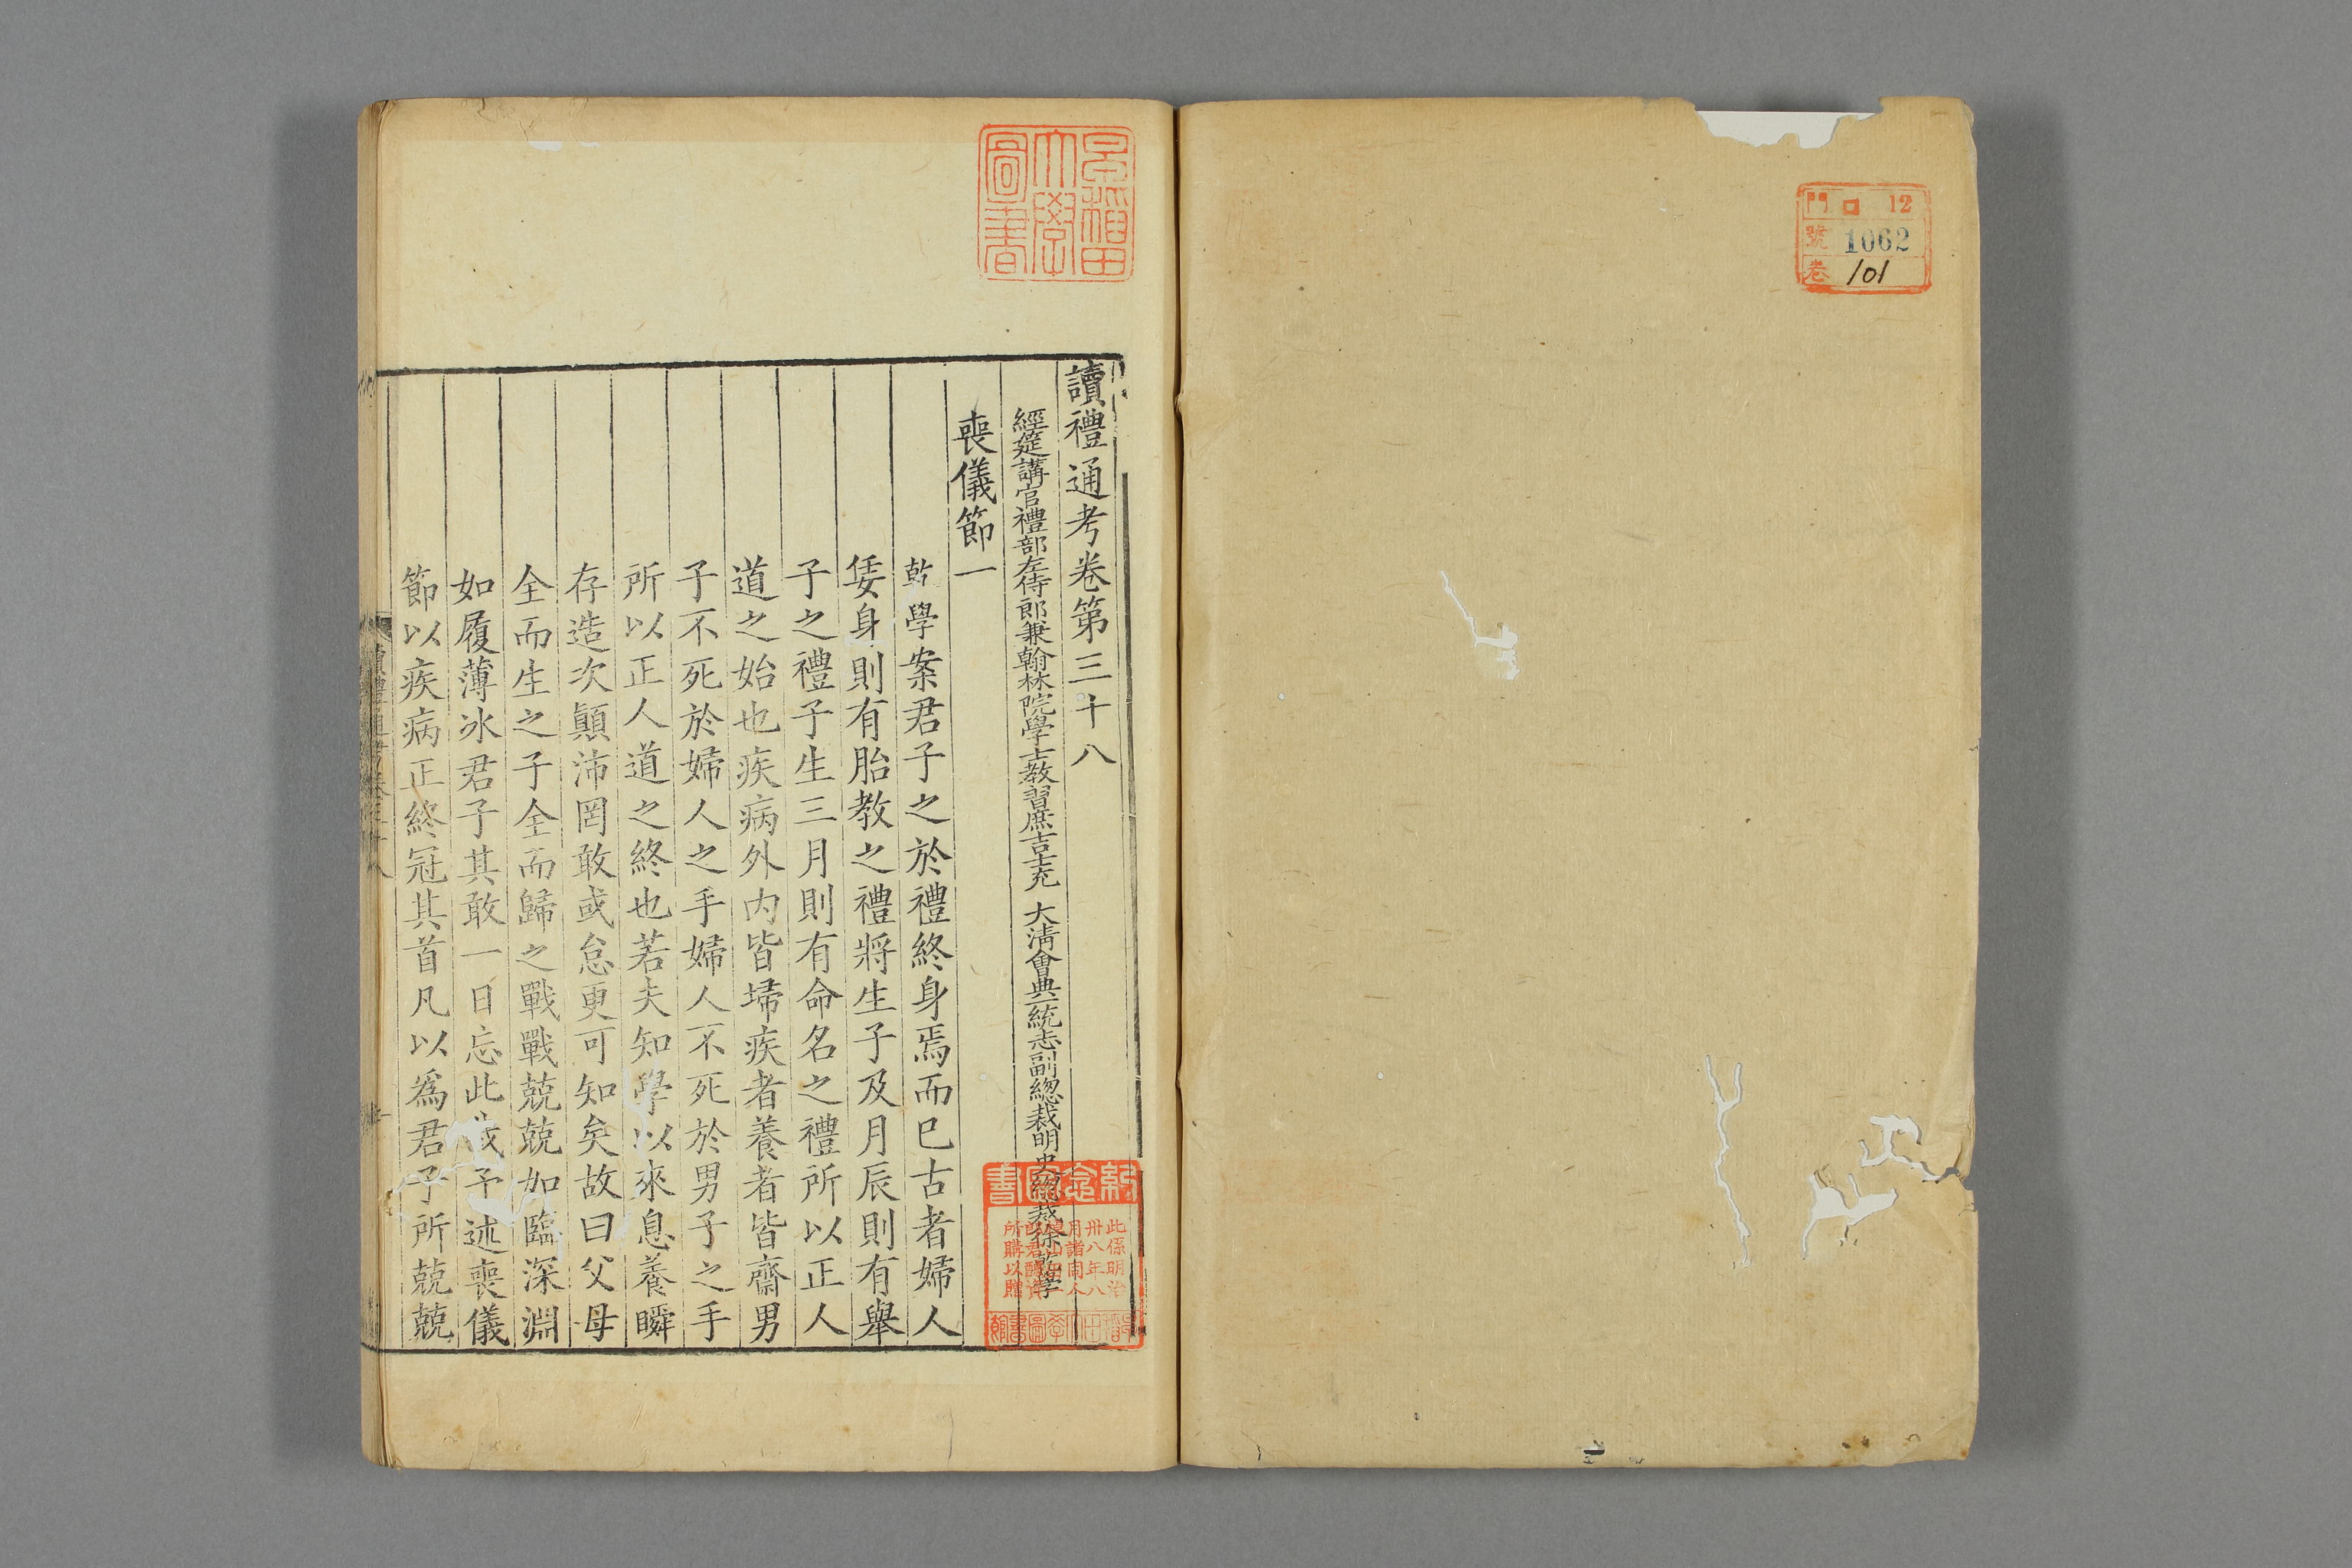 門 口 12
號 1062
卷 101
早稻田
大學
圖書
讀禮通考卷第三十八
經筵講官禮部左侍郎兼翰林院學士教習庶吉士充 大清會典一統志副總裁明史總裁徐乾學
喪儀節一
乾學案君子之於禮終身焉而已古者婦人
娠身則有胎教之禮將生子及月辰則有舉
子之禮子生三月則有命名之禮所以正人
道之始也疾病外内皆埽疾者養者皆齋男
子不死於婦人之手婦人不死於男子之手
所以正人道之終也若夫知學以來息養瞬
存造次顛沛罔敢或怠更可知矣故曰父母
全而生之子全而歸之戰戰兢兢如臨深淵
如履薄冰君子其敢一日忘此哉予述喪儀
節以疾病正終冠其首凡以為君子所兢兢
紀念圖書
此係明治
卅八年八
月諸同人
所購以贈
早稻田大學圖書館
讀禮通考卷三十八